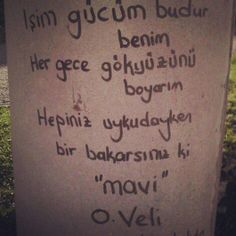 İşim gücüm budur
benim
Her gece gökyüzünü
boyarım
Hepiniz uykudayken
bir bakarsınız ki
"mavi"
O. Veli